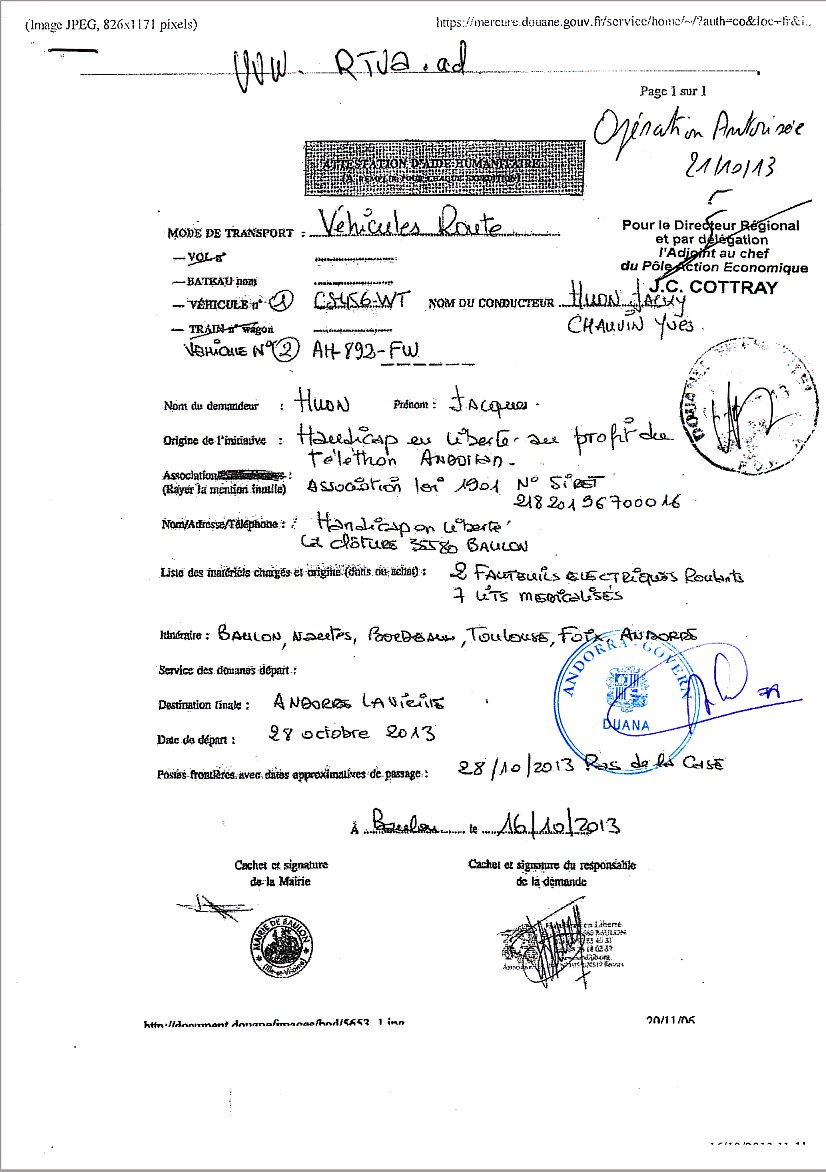 (Image JPEG, 826x1171 pixels) https://mercure.douane.gouv.fr/service/home/~/?auth=co&loc=fr&i..
www. RTVA.ad
Page 1 sur 1
Opération Autorisée
21/10/13
ATTESTATION D'AIDE HUMANITAIRE
(A REMPLIR POUR CHAQUE EXPEDITION)
MODE DE TRANSPORT : Véhicules Route
Pour le Directeur Régional
et par délégation
l'Adjoint au chef
du Pôle Action Economique
J.C. COTTRAY
— VOL n°
— BATEAU nom
— VÉHICULE n° 1 CS456-WT NOM DU CONDUCTEUR HUON Jacky
CHAUVIN Yves.
— TRAIN n° wagon
VEHICULE N° 2 AH-892-FW
Nom du demandeur : HUON Prénom : Jacques.
Origine de l'initiative : Handicap en Liberté au profit du
Téléthon ANDORRAN.
Association :
(Rayer la mention inutile) Association loi 1901 N° SIRET
21820196700016
Nom/Adresse/Téléphone : Handicap en Liberté
La Clôture 35580 BAULON
Liste des matériels chargés et origine (dons ou achat) : 2 FAUTEUILS ELECTRIQUES Roulants
7 LITS MEDICALISÉS
Itinéraire : BAULON, Nantes, BORDEAUX, TOULOUSE, FOIX, ANDORRE
Service des douanes départ :
ANDORRA - GOVERN
DUANA
Destination finale : ANDORRE LA VIEILLE
Date de départ : 28 octobre 2013
Postes frontières avec dates approximatives de passage : 28/10/2013 Pas de la CASE
À Baulon le 16/10/2013
Cachet et signature
de la Mairie
Cachet et signature du responsable
de la demande
MAIRIE DE BAULON
(Ille-et-Vilaine)
en Liberté
BAULON
http://document.douane/images/bod/5653_1.jpg 20/11/06